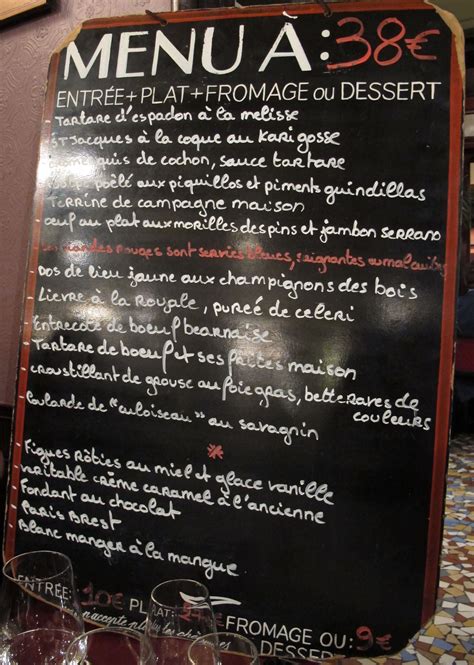 MENU À: 38€
ENTRÉE+PLAT+FROMAGE OU DESSERT
- Tartare d'espadon à la melisse
- ST Jacques à la coque au Kari gosse
de cochon, sauce tartare
poêlé aux piquillos et piments guindillas
- Terrine de campagne maison
- oeuf au plat aux morilles des pins et jambon serrano
- viandes rouges sont servies bleues, saignantes ou mal cuites
- Dos de lieu jaune aux champignons des bois
- Lievre à la Royale, purée de celeri
- Entrecote de boeuf bearnaise
- Tartare de boeuf et ses frites maison
- croustillant de grouse au foie gras, betteraves de
couleurs
- Poularde de "culoiseau" au savagnin
*
- Figues Rôties au miel et glace vanille
- veritable crème caramel à l'ancienne
- Fondant au chocolat
- Paris Brest
- Blanc manger à la mangue
ENTRÉE: 10€ PLAT: FROMAGE OU: 9€
n'accepte plus les chèques DESSERT